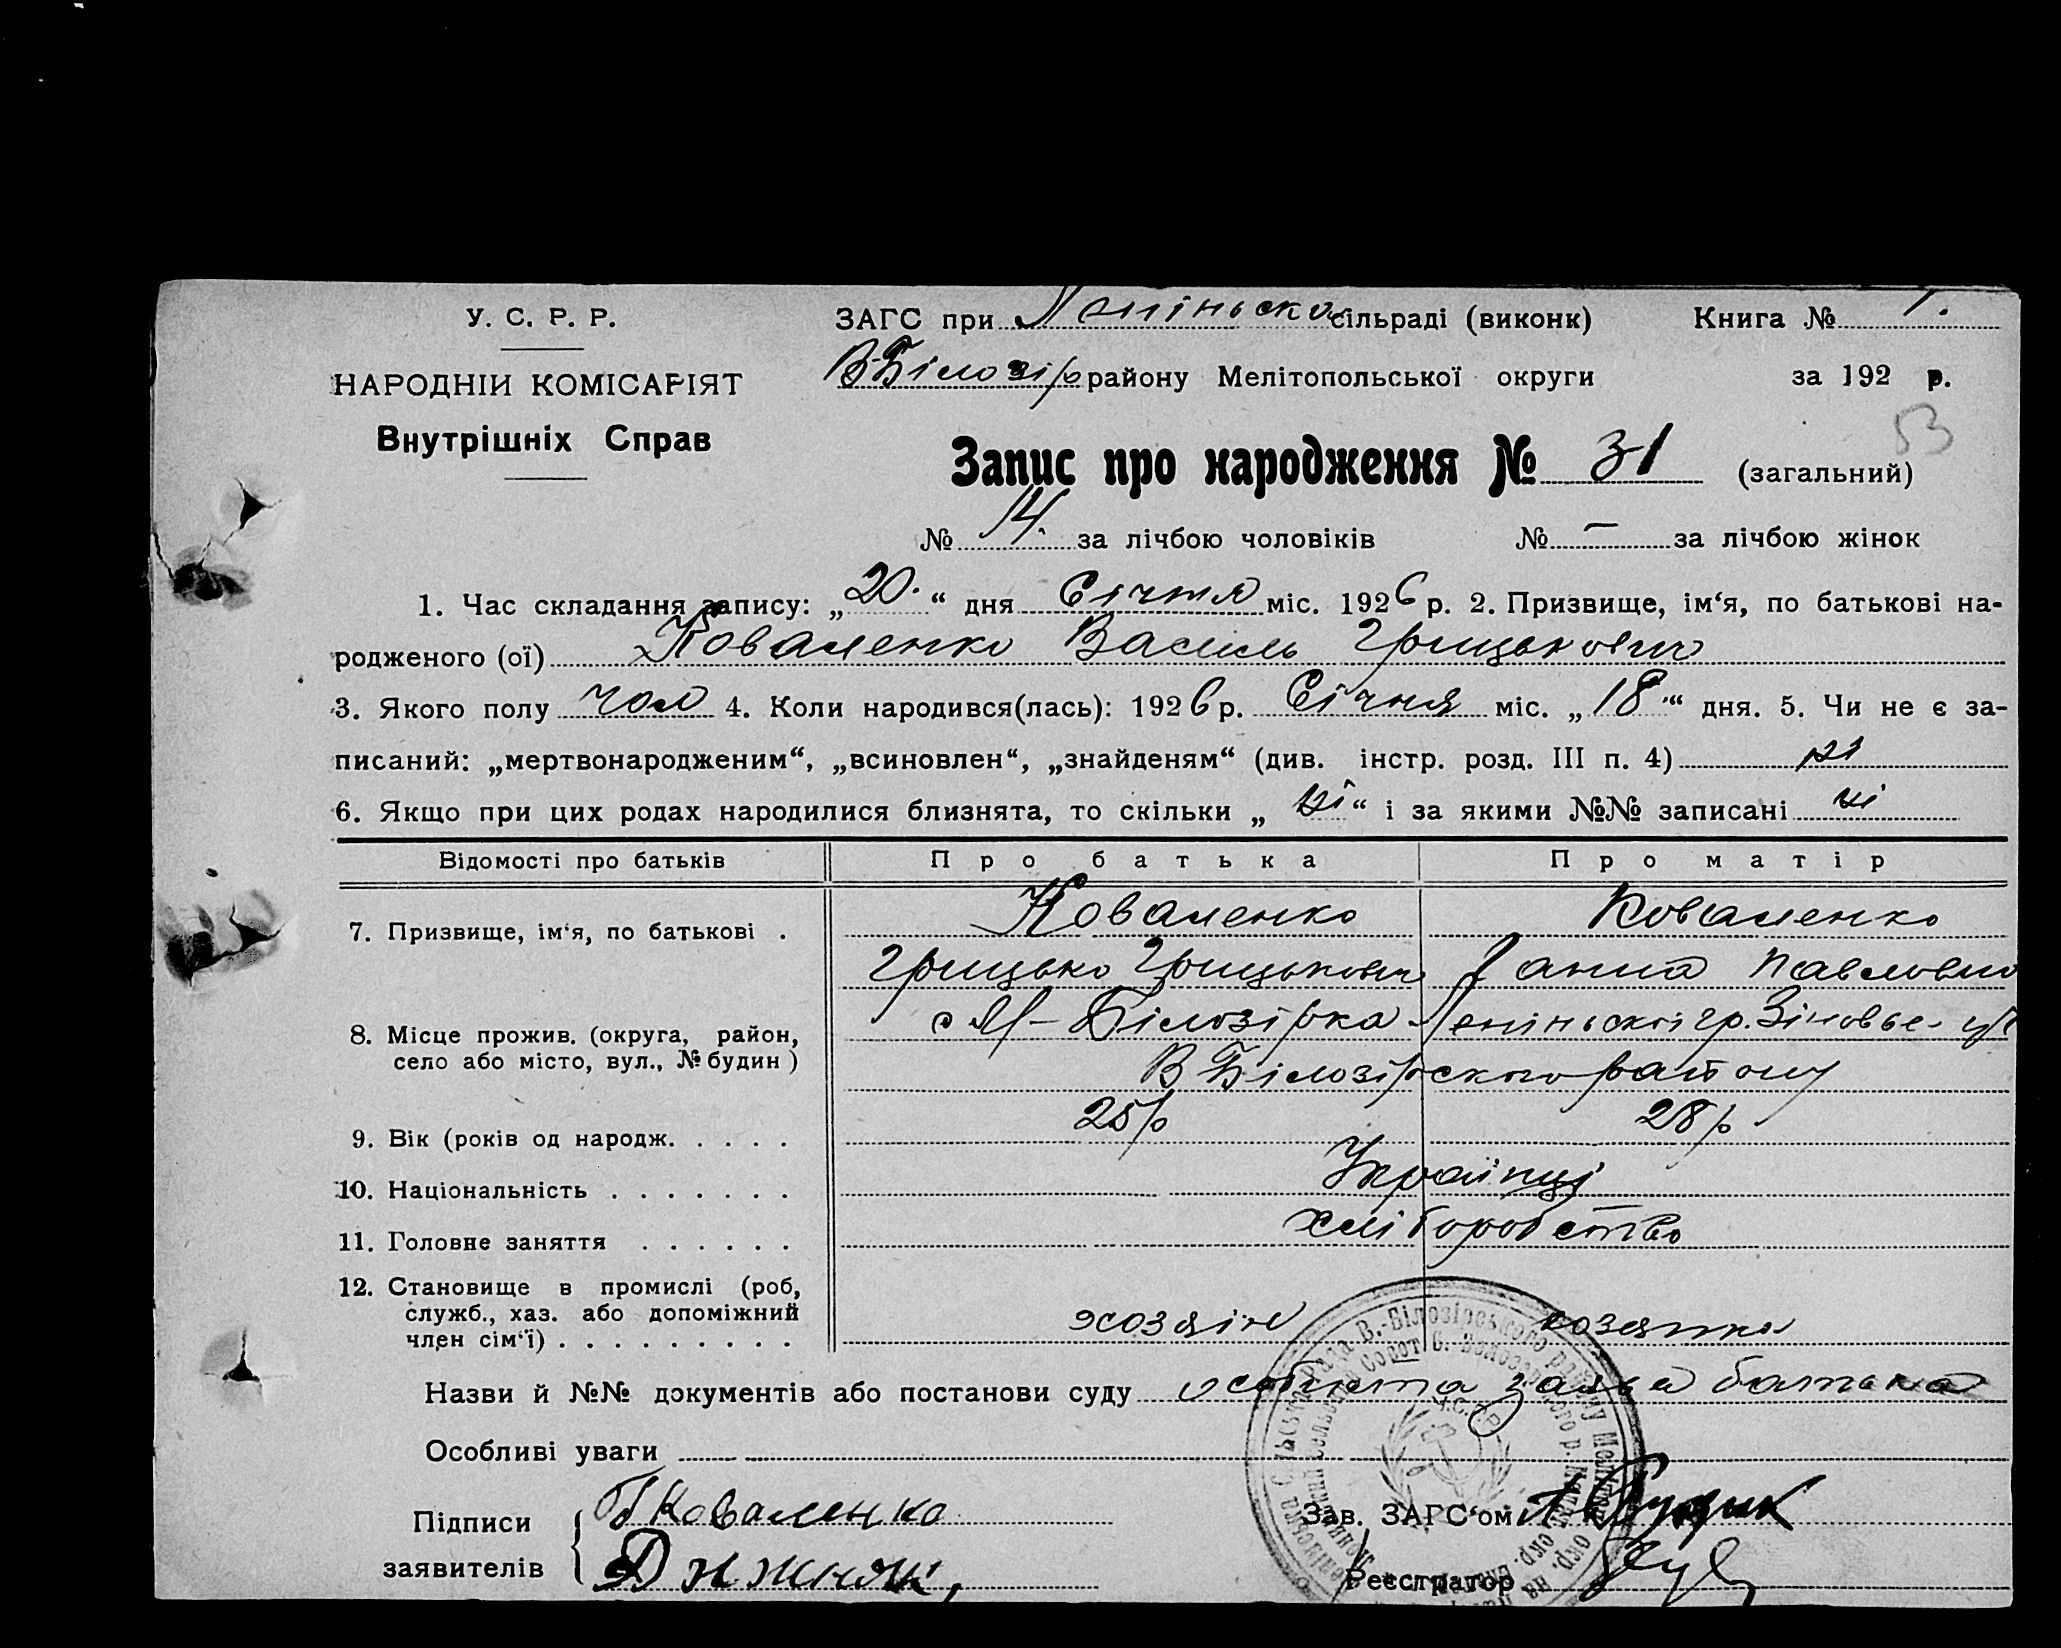 У. С. Р. Р.
НАРОДНІЙ КОМІСАРІЯТ
Внутрішніх Справ
ЗАГС при Леніньско сільраді (виконк) Книга № 1.
В-Білозір району Мелітопольської округи за 192 р.
53
Запис про народження № 31 (загальний)
№ 14. за лічбою чоловіків № — за лічбою жінок
1. Час складання запису: „20.“ дня Січня міс. 1926 р. 2. Призвище, ім‘я, по батькові на-
родженого (ої) Коваленко Василь Грицькович
3. Якого полу чол 4. Коли народився(лась): 1926 р. Січня міс. „18“ дня. 5. Чи не є за-
писаний: „мертвонародженим“, „всиновлен“, „знайденям“ (див. інстр. розд. III п. 4) ні
6. Якщо при цих родах народилися близнята, то скільки „ні“ і за якими №№ записані ні
Відомості про батьків Про батька Про матір
7. Призвище, ім‘я, по батькові . Коваленко Коваленко
Грицько Грицькович Ганна Павловна
8. Місце прожив. (округа, район, село або місто, вул., № будин) с М-Білозірка Леніньской гр. Зіновье-
В Білозірского району
9. Вік (років од народж. . . . . 25 р 28 р
10. Національність . . . . . . . Українці
11. Головне заняття . . . . . . хліборобство
12. Становище в промислі (роб,
служб., хаз. або допоміжний
член сім‘ї) . . . . . . . . . хозяін хозяика
Назви й №№ документів або постанови суду особиста заява батька
Особливі уваги
Підписи Г Коваленко Зав. ЗАГС‘ом
заявителів Реєстратор